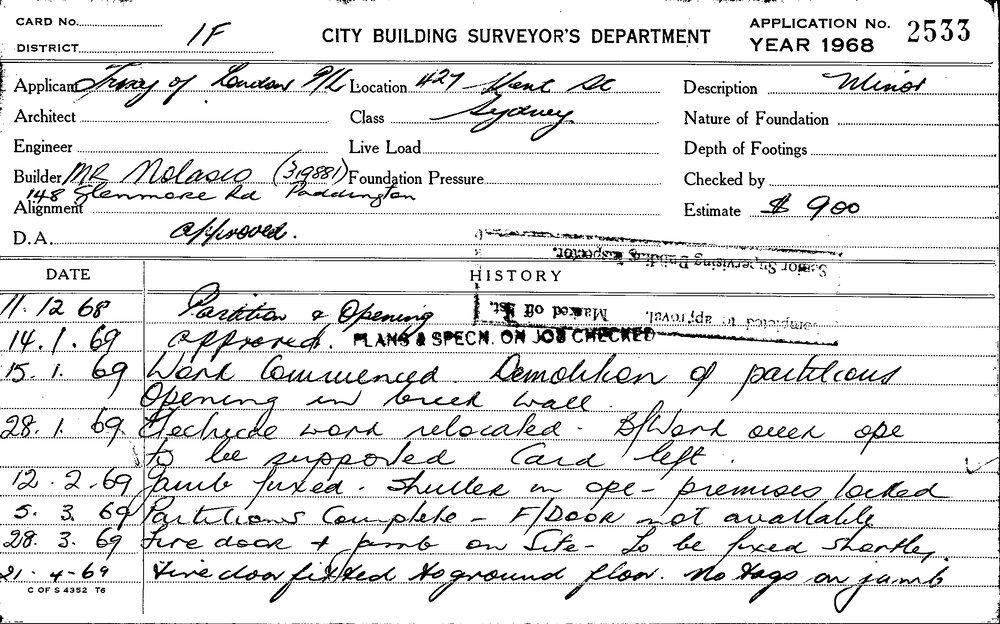 CARD No.
DISTRICT 1F
CITY BUILDING SURVEYOR'S DEPARTMENT
APPLICATION No. 2533
YEAR 1968
Applicant of London P/L Location 427 Kent St
Sydney
Description Minor
Architect
Class
Nature of Foundation
Engineer
Live Load
Depth of Footings
Builder MR Nolasco (319881) Foundation Pressure
148 Glenmore Rd Paddington
Checked by
Alignment
Estimate $ 900
D.A. approved.
Senior Supervising Building Inspector.
DATE HISTORY
completed to approval. Marked off list.
11.12 68 Partition & Opening
14.1.69 approved. PLANS & SPECN. ON JOB CHECKED
15.1.69 Work Commenced. Demolition of partitions
Opening in brick wall.
28.1.69 work relocated - B/Work over ope
to be supported Card left.
12.2.69 Jamb fixed. Shutter on ope - premises locked
5.3.69 Partitions Complete - F/Door not available
28.3.69 Fire door & jamb on Site - To be fixed shortly.
21.4-69 Fire door fitted to ground floor. No tags on jamb
C OF S 4352 T6